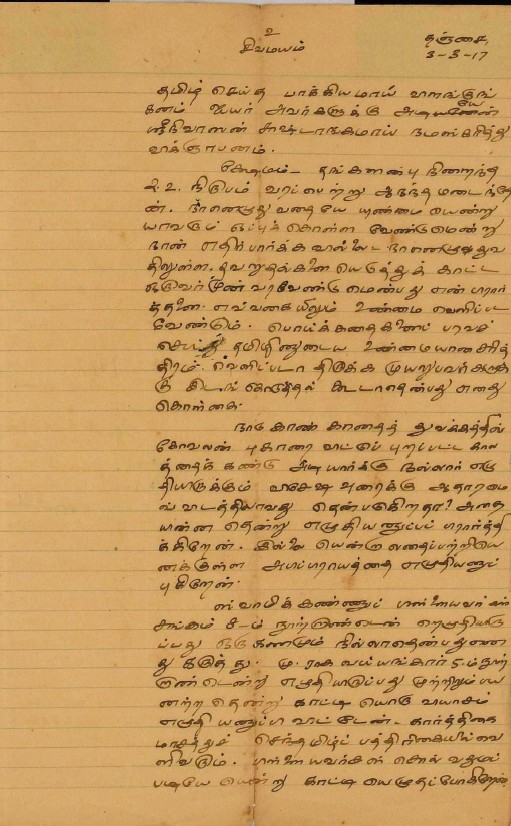 உ
சிவமயம்
தஞ்சை,
3-3-17
தமிழ் செய்த பாக்கியமாய் வாளங்குங்
கனம் ஐயர் அவர்களுக்கு அடியனேன்
ஸ்ரீநிவாஸன் சாஷ்டாங்கமாய் நமஸ்கரித்து
விக்ஞாபனம்.
க்ஷேமம் - தங்களன்பு நிறைந்த
நிருபம் வரப்பெற்று ஆநந்தமடைந்தே
ன். நானெழுதுவதையே யுண்மை யென்று
யாவரும் ஒப்புக்கொள்ள வேண்டுமென்று
நான் எதிர்பார்க்கவில்லை. நானெழுதுவ
திலுள்ள தவறுதல்களை யெடுத்துக் காட்ட
ஒருவர் முன் வரவேண்டுமென்பது என் பிரார்
த்தனை. எவ்வகையிலும் உண்மை வெளிப்பட
வேண்டும். பொய்க்கதைகளைப் பரவச்
செய்து தமிழினுடைய உண்மையான சரித்
திரம் வெளிப்படாதிருக்க முயலுபவர்களுக்
கு இடங் கொடுத்தல் கூடாதென்பது எனது
கொள்கை.
நாடுகாண் காதைத் துவக்கத்தில்
கோவலன் புகாரை விட்டுப் புறப்பட்ட கால
த்தைக் கண்டு அடியார்க்கு நல்லார் எழு
தியிருக்கும் விசேஷ வுரைக்கு ஆதாரமை
வ் விடத்தியாவது தென்படுகிறதா? அதை
யின்ன தென்று எழுதியனுப்பப் பிரார்த்தி
க்கிறேன். இல்லை யென்றால் அதைப்பற்றியெ
னக்குள்ள அபிப்பிராயத்தை எழுதியனுப்
புகிறேன்.
ஸ்வாமிக்கண்ணுப் பிள்ளையவர்கள்
சங்கம் 8-ம் நூற்றாண்டென் றெழுதியிரு
ப்பது ஒரு கணமும் நில்லாதென்பது என
து கருத்து. மு. ராகவய்யங்கார் 5-ம் நூற்
றாண்டென்று எழுதியிருப்பது முற்றிலும் பய
னற்ற தென்று காட்டி யொரு வியாசம்
எழுதி யனுப்பி விட்டேன். கார்த்திகை
மாசத்துச் செந்தமிழ்ப் பத்திரிகையில் வெ
ளிவரும். பிள்ளையவர்கள் சொல்வதும்
படியே யென்று காட்டி யெழுதப்போகிறேன்.